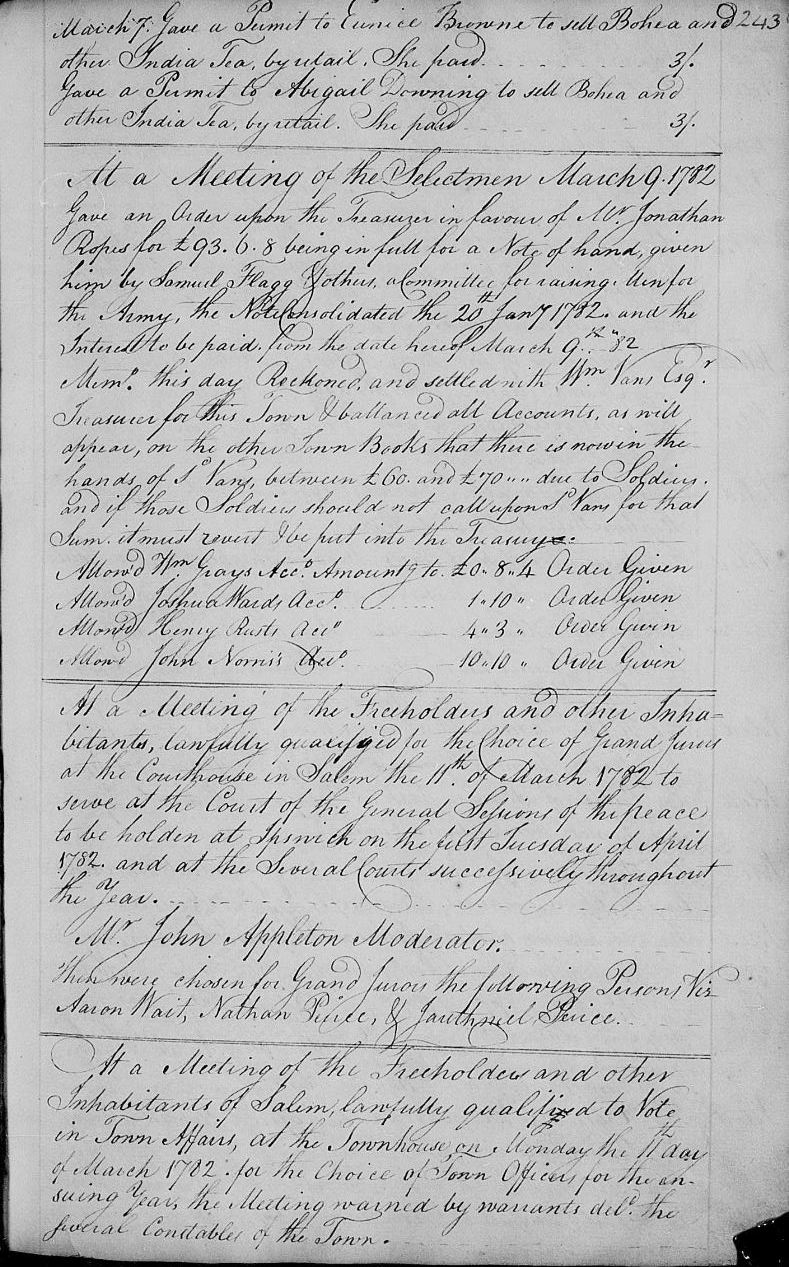 243
March 7. Gave a Permit to Eunice Browne to sell Bohea and
other India Tea, by retail. She paid 3/.
Gave a Permit to Abigail Downing to sell Bohea and
other India Tea, by retail. She paid 3/.
At a Meeting of the Selectmen March 9. 1782
Gave an Order upon the Treasurer in favour of Mr Jonathan
Ropes for £93. 6. 8 being in full for a Note of hand, given
him by Samuel Flagg & others, a Committee for raising Men for
the Army, the Note Consolidated the 20th Jany 1782. and the
Interest to be paid. from the date hereof March 9th. 82
Memo. this day Reckoned, and settled with Wm Vans Esqr.
Treasurer for this Town & ballanced all Accounts, as will
appear, on the other Town Books that there is now in the
hands of Sd Vans, between £60. and £70 ,, ,, due to Soldiers.
and if those Soldiers should not call upon Sd Vans for that
Sum. it must revert & be put into the Treasury.
Allow'd Wm Grays Acco. Amountg to. £0 ,, 8 ,, 4 Order Given
Allow'd Joshua Wards Acco. 1 ,, 10 ,, Order Given
Allow'd Henry Rusts Acco 4 ,, 3 ,, Order Given
Allow'd John Norris's Acco. 10 ,, 10 ,, Order Given
At a Meeting of the Freeholders and other Inha=
bitants, lawfully qualifyed for the Choice of Grand Jurors
at the Courthouse in Salem the 11th. of March 1782 to
serve at the Court of the General Sessions of the peace
to be holden at Ipswich on the first Tuesday of April
1782. and at the Several Courts successively throughout
the Year.
Mr John Appleton Moderator.
then were chosen for Grand Jurors the following Persons Viz
Aaron Wait, Nathan Peirce, & Peirce.
At a Meeting of the Freeholders and other
Inhabitants of Salem, lawfully qualified to Vote
in Town Affairs, at the Townhouse on Monday the 11th day
of March 1782. for the Choice of Town Officers for the en-
suing Year, the Meeting warned by warrants deld. the
several Constables of the Town.